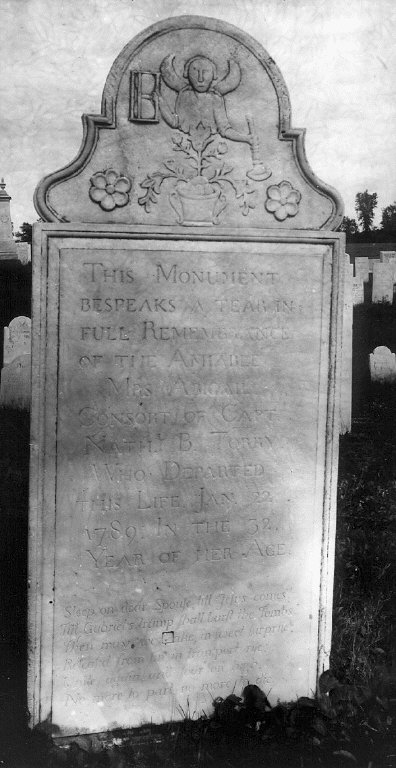 B
THIS MONUMENT
BESPEAKS A TEAR IN
FULL REMEMBRANCE
OF THE AMIABLE
MRS ABIGAIL
CONSORT OF CAPT
NATHL B. TORRY
WHO DEPARTED
THIS LIFE JAN. 22
1789 IN THE 32
YEAR OF HER AGE
Sleep on dear Spouse till Jesus comes
Till Gabriel's trump shall burst the Tombs
Then must we wake, in sweet surprise
in transport rise
again
No more to part no more to die